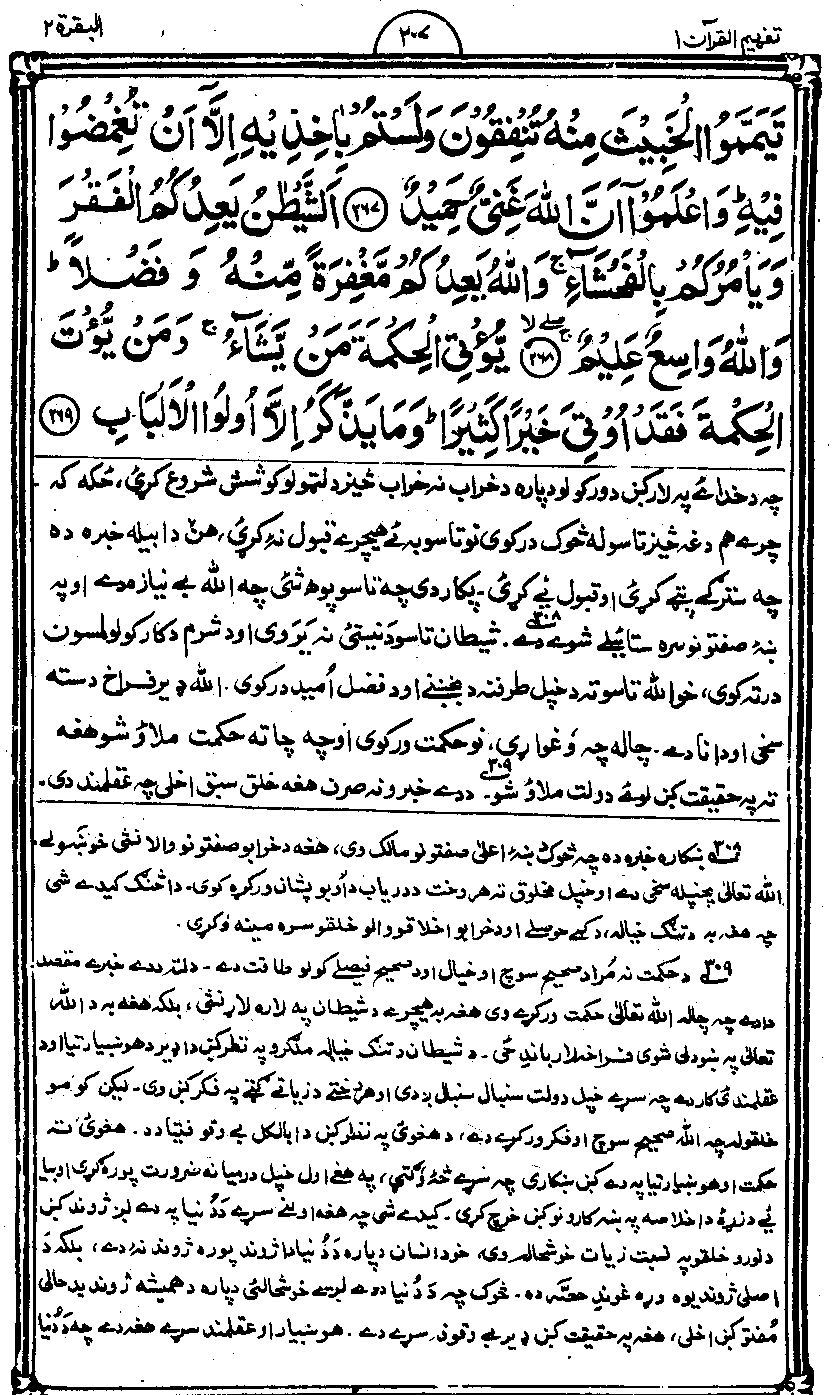 تفهيم القرآن ۱
۲۰۷
البقرة ۲
تَيَمَّمُوا الْخَبِيْثَ مِنْهُ تُنْفِقُوْنَ وَلَسْتُمْ بِاٰخِذِيْهِ اِلَّآ اَنْ تُغْمِضُوْا
فِيْهِ ؕ وَاعْلَمُوْٓا اَنَّ اللّٰهَ غَنِىٌّ حَمِيْدٌ ﴿۲۶۷﴾ اَلشَّيْطٰنُ يَعِدُكُمُ الْفَقْرَ
وَيَاْمُرُكُمْ بِالْفَحْشَآءِ ۚ وَاللّٰهُ يَعِدُكُمْ مَّغْفِرَةً مِّنْهُ وَفَضْلًا ؕ
وَاللّٰهُ وَاسِعٌ عَلِيْمٌ ﴿۲۶۸﴾ يُّؤْتِى الْحِكْمَةَ مَنْ يَّشَآءُ ۚ وَمَنْ يُّؤْتَ
الْحِكْمَةَ فَقَدْ اُوْتِىَ خَيْرًا كَثِيْرًا ؕ وَمَا يَذَّكَّرُ اِلَّآ اُولُوا الْاَلْبَابِ ﴿۲۶۹﴾
چه د خدائے په لار کښ د ورکولو دپاره د خراب نه خراب څيز د لټولو کوشش شروع کړئ، ځکه که
چرے هم دغه څيز تاسو له څوک درکوى نو تاسو به ئے هيچرے قبول نه کړئ، هن دا بيله خبره ده
چه سترګے پټے کړئ او قبول ئے کړئ ۔ پکار دى چه تاسو پوهه شئ چه الله بے نيازه دے او په
ښۀ صفتونو سره ستائيلے شوے دے ۳۰۸ ۔ شيطان تاسو د نيستئ نه يروى او د شرم د کار کولو لمسون
درته کوى، خو الله تاسو ته د خپل طرفنه د بخښنے او د فضل اُميد درکوى ۔ الله ډير فراخ دسته
سخى او دانا دے ۔ چا له چه وغواړى، نو حکمت ورکوى او چه چا ته حکمت ملاؤ شو هغه
ته په حقيقت کښ لوئے دولت ملاؤ شو ۳۰۹ ۔ د دے خبرو نه صرف هغه خلق سبق اخلى چه عقلمند دى ۔
۳۰۸ ښکاره خبره ده چه څوک ښۀ اعلىٰ صفتونو مالک وى، هغه د خرابو صفتونو والا نشى خوښولے
الله تعالىٰ پخپله سخى دے او خپل مخلوق ته هر وخت د درياب د اوبو پشان ورکړه کوى ۔ دا څنګ کيدے شى
چه هغه به د تنګ خياله، د کمے حوصلے او د خرابو اخلاقو والو خلقو سره مينه وکړى ۔
۳۰۹ د حکمت نه مُراد صحيح سوچ او خيال او د صحيح فيصلے کولو طاقت دے ۔ دلته د دے خبرے مقصد
دا دے چه چا له الله تعالىٰ حکمت ورکړے وى هغه به هيچرے د شيطان په لاره لاړ نشى، بلکه هغه به د الله
تعالىٰ په ښودلى شوى فراخه لار باندِ ځى ۔ د شيطان د تنګ خياله ملګرو په نظر کښ دا ډير د هوښيارتيا او د
عقلمندئ کار دے چه سړے خپل دولت سنبال سنبال ږدى او هر وختے د زياتے ګټے په فکر کښ وى ۔ ليکن کومو
خلقو له چه الله صحيح سوچ او فکر ورکړے دے، د هغوئ په نظر کښ دا بالکل بے وقوفتيا ده ۔ هغوئ ته
حکمت او هوښيارتيا په دے کښ ښکارى چه سړے څۀ ګټى، په هغے اول خپل درميانه ضرورت پوره کړى او بيا
ئے د زړۀ د اخلاصه په ښه کارونو کښ خرچ کړى ۔ کيدے شى چه هغه اولنے سړے د دُنيا په دے لږ ژوند کښ
د نورو خلقو په نسبت زيات خوشحاله وى، خو د انسان دپاره د دُنيا دا ژوند پوره ژوند نۀ دے، بلکه د
اصلى ژوند يوه وړه غوندِ حصّه ده ۔ څوک چه د دُنيا د دے لږ خوشحالئ دپاره د هميشه ژوند بدحالى
مُفتو کښ اخلى، هغه په حقيقت کښ ډير بے وقوف سړے دے ۔ هوښيار او عقلمند سړے هغه دے چه د دُنيا